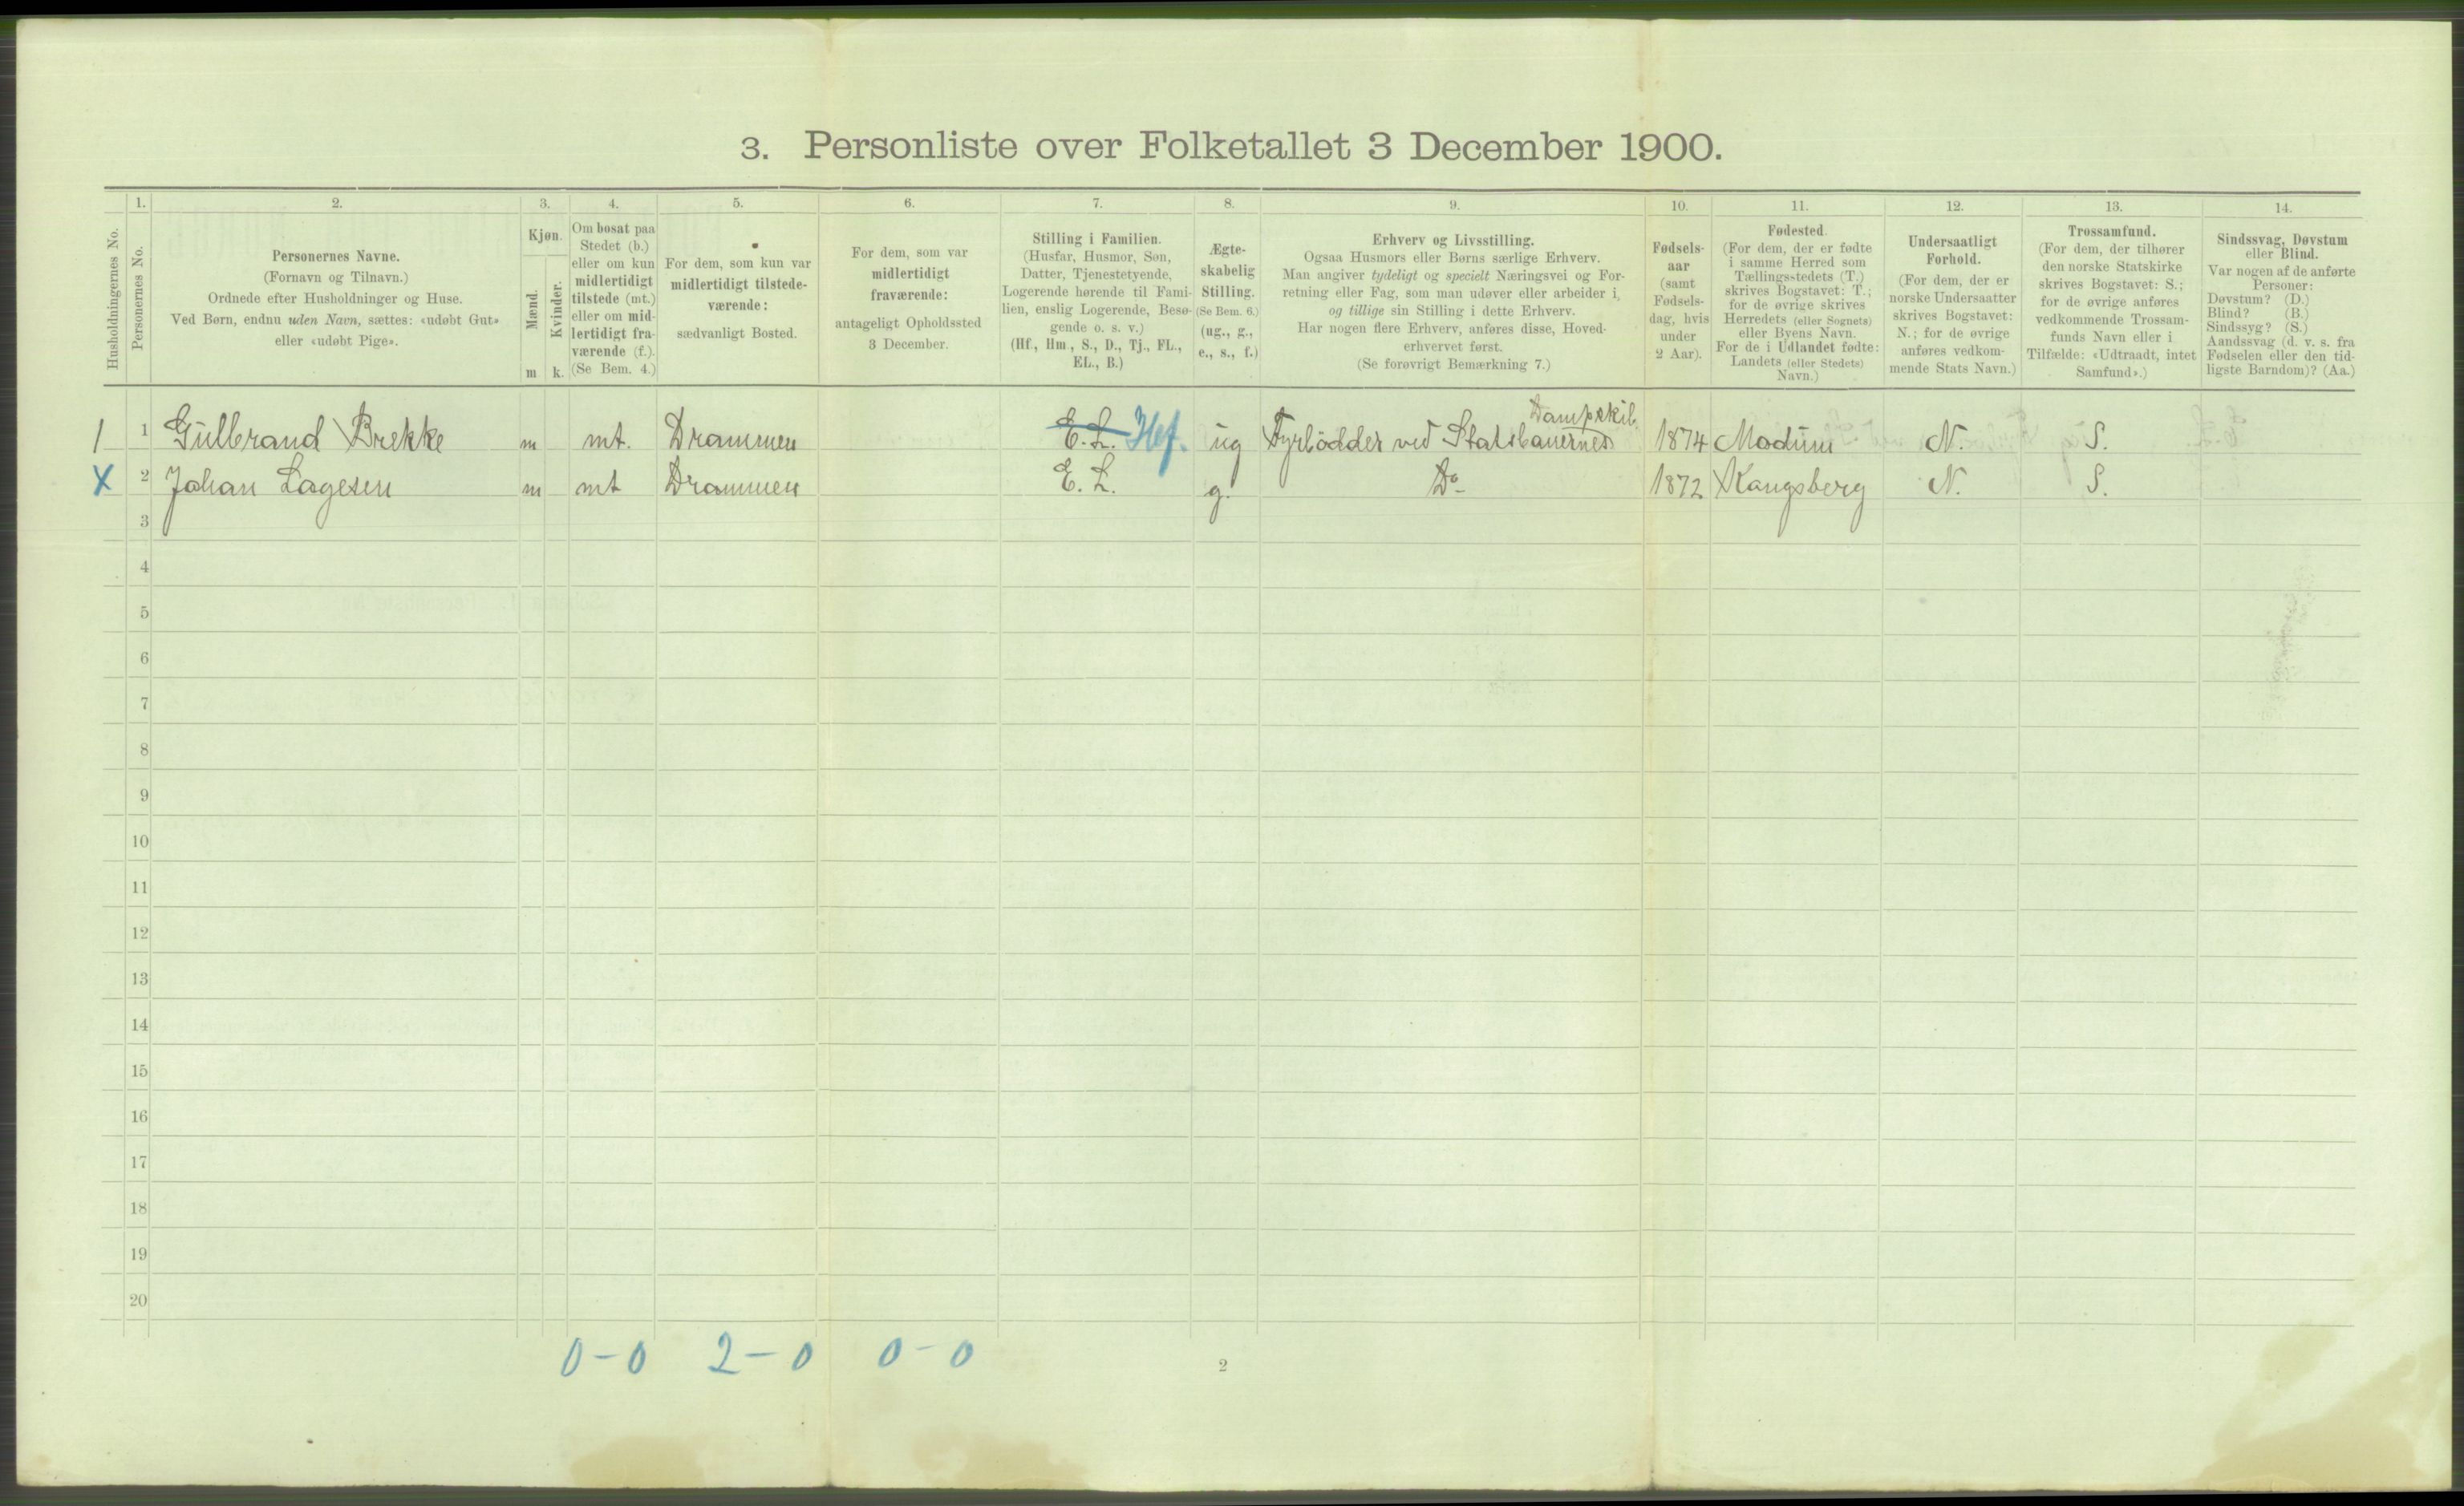 3. Personliste over Folketallet 3 December 1900.
Husholdningernes No.
1. Personernes No.
2. Personernes Navne.
(Fornavn og Tilnavn.)
Ordnede efter Husholdninger og Huse.
Ved Børn, endnu uden Navn, sættes: «udøbt Gut»
eller «udøbt Pige».
3. Kjøn.
Mænd.
Kvinder.
m k.
4. Om bosat paa
Stedet (b.)
eller om kun
midlertidigt
tilstede (mt.)
eller om mid-
lertidigt fra-
værende (f.).
(Se Bem. 4.)
5. For dem, som kun var
midlertidigt tilstede-
værende:
sædvanligt Bosted.
6. For dem, som var
midlertidigt
fraværende:
antageligt Opholdssted
3 December.
7. Stilling i Familien.
(Husfar, Husmor, Søn,
Datter, Tjenestetyende,
Logerende hørende til Fami-
lien, enslig Logerende, Besø-
gende o. s. v.)
(Hf., Hm., S., D., Tj., FL.,
EL., B.)
8. Ægte-
skabelig
Stilling.
(Se Bem. 6.)
(ug., g.,
e., s., f.)
9. Erhverv og Livsstilling.
Ogsaa Husmors eller Børns særlige Erhverv.
Man angiver tydeligt og specielt Næringsvei og For-
retning eller Fag, som man udøver eller arbeider i,
og tillige sin Stilling i dette Erhverv.
Har nogen flere Erhverv, anføres disse, Hoved-
erhvervet først.
(Se forøvrigt Bemærkning 7.)
10. Fødsels-
aar
(samt
Fødsels-
dag, hvis
under
2 Aar).
11. Fødested.
(For dem, der er fødte
i samme Herred som
Tællingsstedets (T.)
skrives Bogstavet: T.;
for de øvrige skrives
Herredets (eller Sognets)
eller Byens Navn.
For de i Udlandet fødte:
Landets (eller Stedets)
Navn.)
12. Undersaatligt
Forhold.
(For dem, der er
norske Undersaatter
skrives Bogstavet:
N.; for de øvrige
anføres vedkom-
mende Stats Navn.)
13. Trossamfund.
(For dem, der tilhører
den norske Statskirke
skrives Bogstavet: S.;
for de øvrige anføres
vedkommende Trossam-
funds Navn eller i
Tilfælde: «Udtraadt, intet
Samfund».)
14. Sindssvag, Døvstum
eller Blind.
Var nogen af de anførte
Personer:
Døvstum? (D.)
Blind? (B.)
Sindssyg? (S.)
Aandssvag (d. v. s. fra
Fødselen eller den tid-
ligste Barndom)? (Aa.)
Dampskib.
1 1 Gulbrand Brekke m mt. Drammen E. L. Hf. ug Fyrbödder ved Statsbanernes 1874 Modum N. S.
X 2 Johan Lagesen m mt Drammen E. L. g. Do 1872 Kongsberg N. S.
3
4
5
6
7
8
9
10
11
12
13
14
15
16
17
18
19
20
0-0 2-0 0-0
2